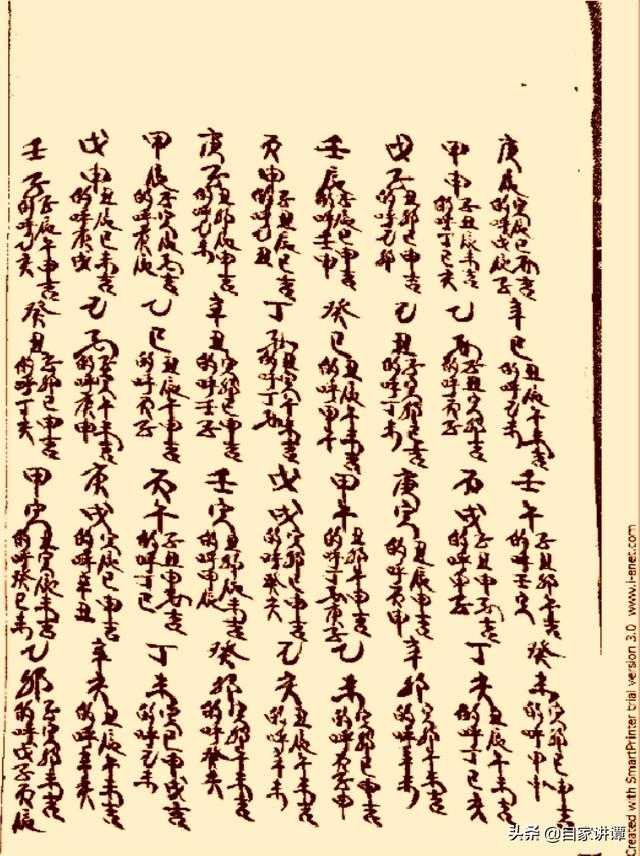 庚辰 寅辰巳吉 的呼戊辰子 辛巳 丑辰午未吉 的呼乙未 壬午 子丑卯午吉 的呼壬寅 癸未 寅卯巳申吉 的呼甲
甲申 子丑辰未吉 的呼丁巳亥 乙酉 子丑寅卯吉 的呼丙子 丙戌 子丑申酉吉 的呼甲 丁亥 丑辰午未吉 的呼丁巳亥
戊子 丑卯巳申吉 的呼乙卯 己丑 子寅卯巳吉 的呼丁未 庚寅 丑辰未吉 的呼丙申 辛卯 寅卯午未吉 的呼辛未
壬辰 辰巳申吉 的呼壬申 癸巳 丑辰午未吉 的呼甲午 甲午 丑卯申吉 的呼丁酉庚子 乙未 寅卯巳申吉 的呼丙子申
丙申 子丑辰巳吉 的呼乙丑 丁酉 丑寅午未吉 的呼丁酉 戊戌 寅卯巳申吉 的呼癸亥 己亥 丑辰午未吉 的呼辛未
庚子 丑卯辰申吉 的呼乙未 辛丑 寅卯巳申吉 的呼壬子 壬寅 丑卯辰未吉 的呼甲辰 癸卯 寅卯午未吉 的呼癸亥
甲辰 寅辰酉吉 的呼庚辰 乙巳 丑辰午申吉 的呼丙子 丙午 子丑申酉吉 的呼丁巳 丁未 寅巳申戌吉 的呼乙未
戊申 丑辰巳未吉 的呼庚戌 己酉 子寅午未吉 的呼庚申 庚戌 寅辰巳申吉 的呼辛丑 辛亥 丑辰午未吉 的呼辛亥
壬子 子辰午申吉 的呼乙亥 癸丑 子卯巳申吉 的呼丁亥 甲寅 丑寅辰未吉 的呼癸巳未 乙卯 子寅卯未吉 的呼戊子丙辰
Created with SmartPrinter trial version 3.0 www.i-enet.com
头条 @自家讲谭